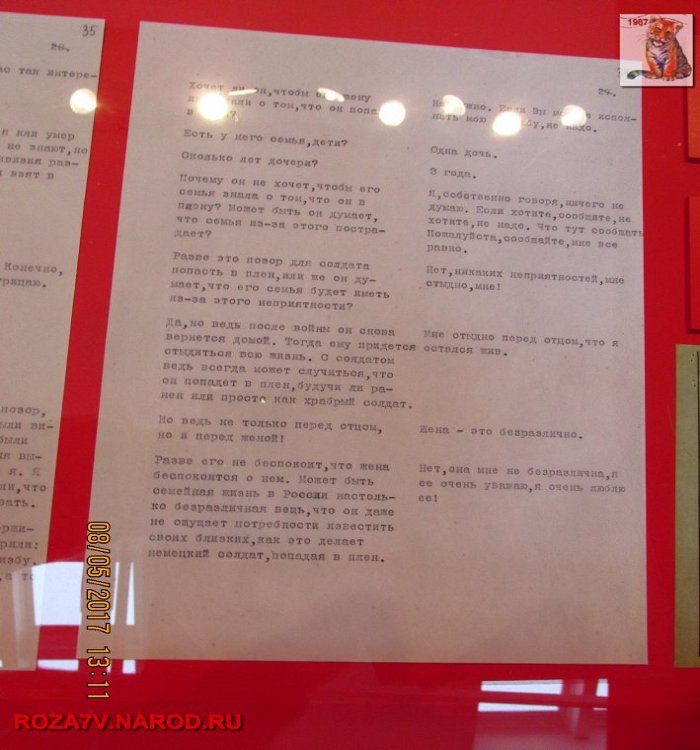 35
28.
но так интере-
я или умер
не знают, но
ивизия раз-
взят в
Конечно,
трицаю.
позор,
были ви-
были
ия вы-
я. Я
ли, что
вать.
держи-
ряли:
избу.
,а то
1987
29.
Хочет ли он,чтобы его жену
о том,что он попал
в
Есть у него семья,дети?
Сколько лет дочери?
Почему он не хочет,чтобы его
семья знала о том,что он в
плену? Может быть он думает,
что семья из-за этого постра-
дает?
Разве это позор для солдата
попасть в плен,или же он ду-
мает,что его семья будет иметь
из-за этого неприятности?
Да,но ведь после войны он снова
вернется домой. Тогда ему придется
стыдиться всю жизнь. С солдатом
ведь всегда может случиться,что
он попадет в плен,будучи ли ра-
нен или просто как храбрый солдат.
Но ведь не только перед отцом,
но и перед женой!
Разве его не беспокоит,что жена
беспокоится о нем. Может быть
семейная жизнь в России настоль-
ко безразличная вещь,что он даже
не ощущает потребности известить
своих близких,как это делает
немецкий солдат,попадая в плен.
Не нужно. Если Вы испол-
нать мою не надо.
Одна дочь.
3 года.
Я,собственно говоря,ничего не
думаю. Если хотите,сообщите,не
хотите,не надо. Что тут сообщать
Пожалуйста,сообщайте,мне все
равно.
Нет,никаких неприятностей,мне
стыдно,мне!
Мне стыдно перед отцом,что я
остался жив.
Жена - это безразлично.
Нет,она мне не безразлична,я
ее очень уважаю,я очень люблю
ее!
08/05/2017 13:11
ROZA7V.NAROD.RU